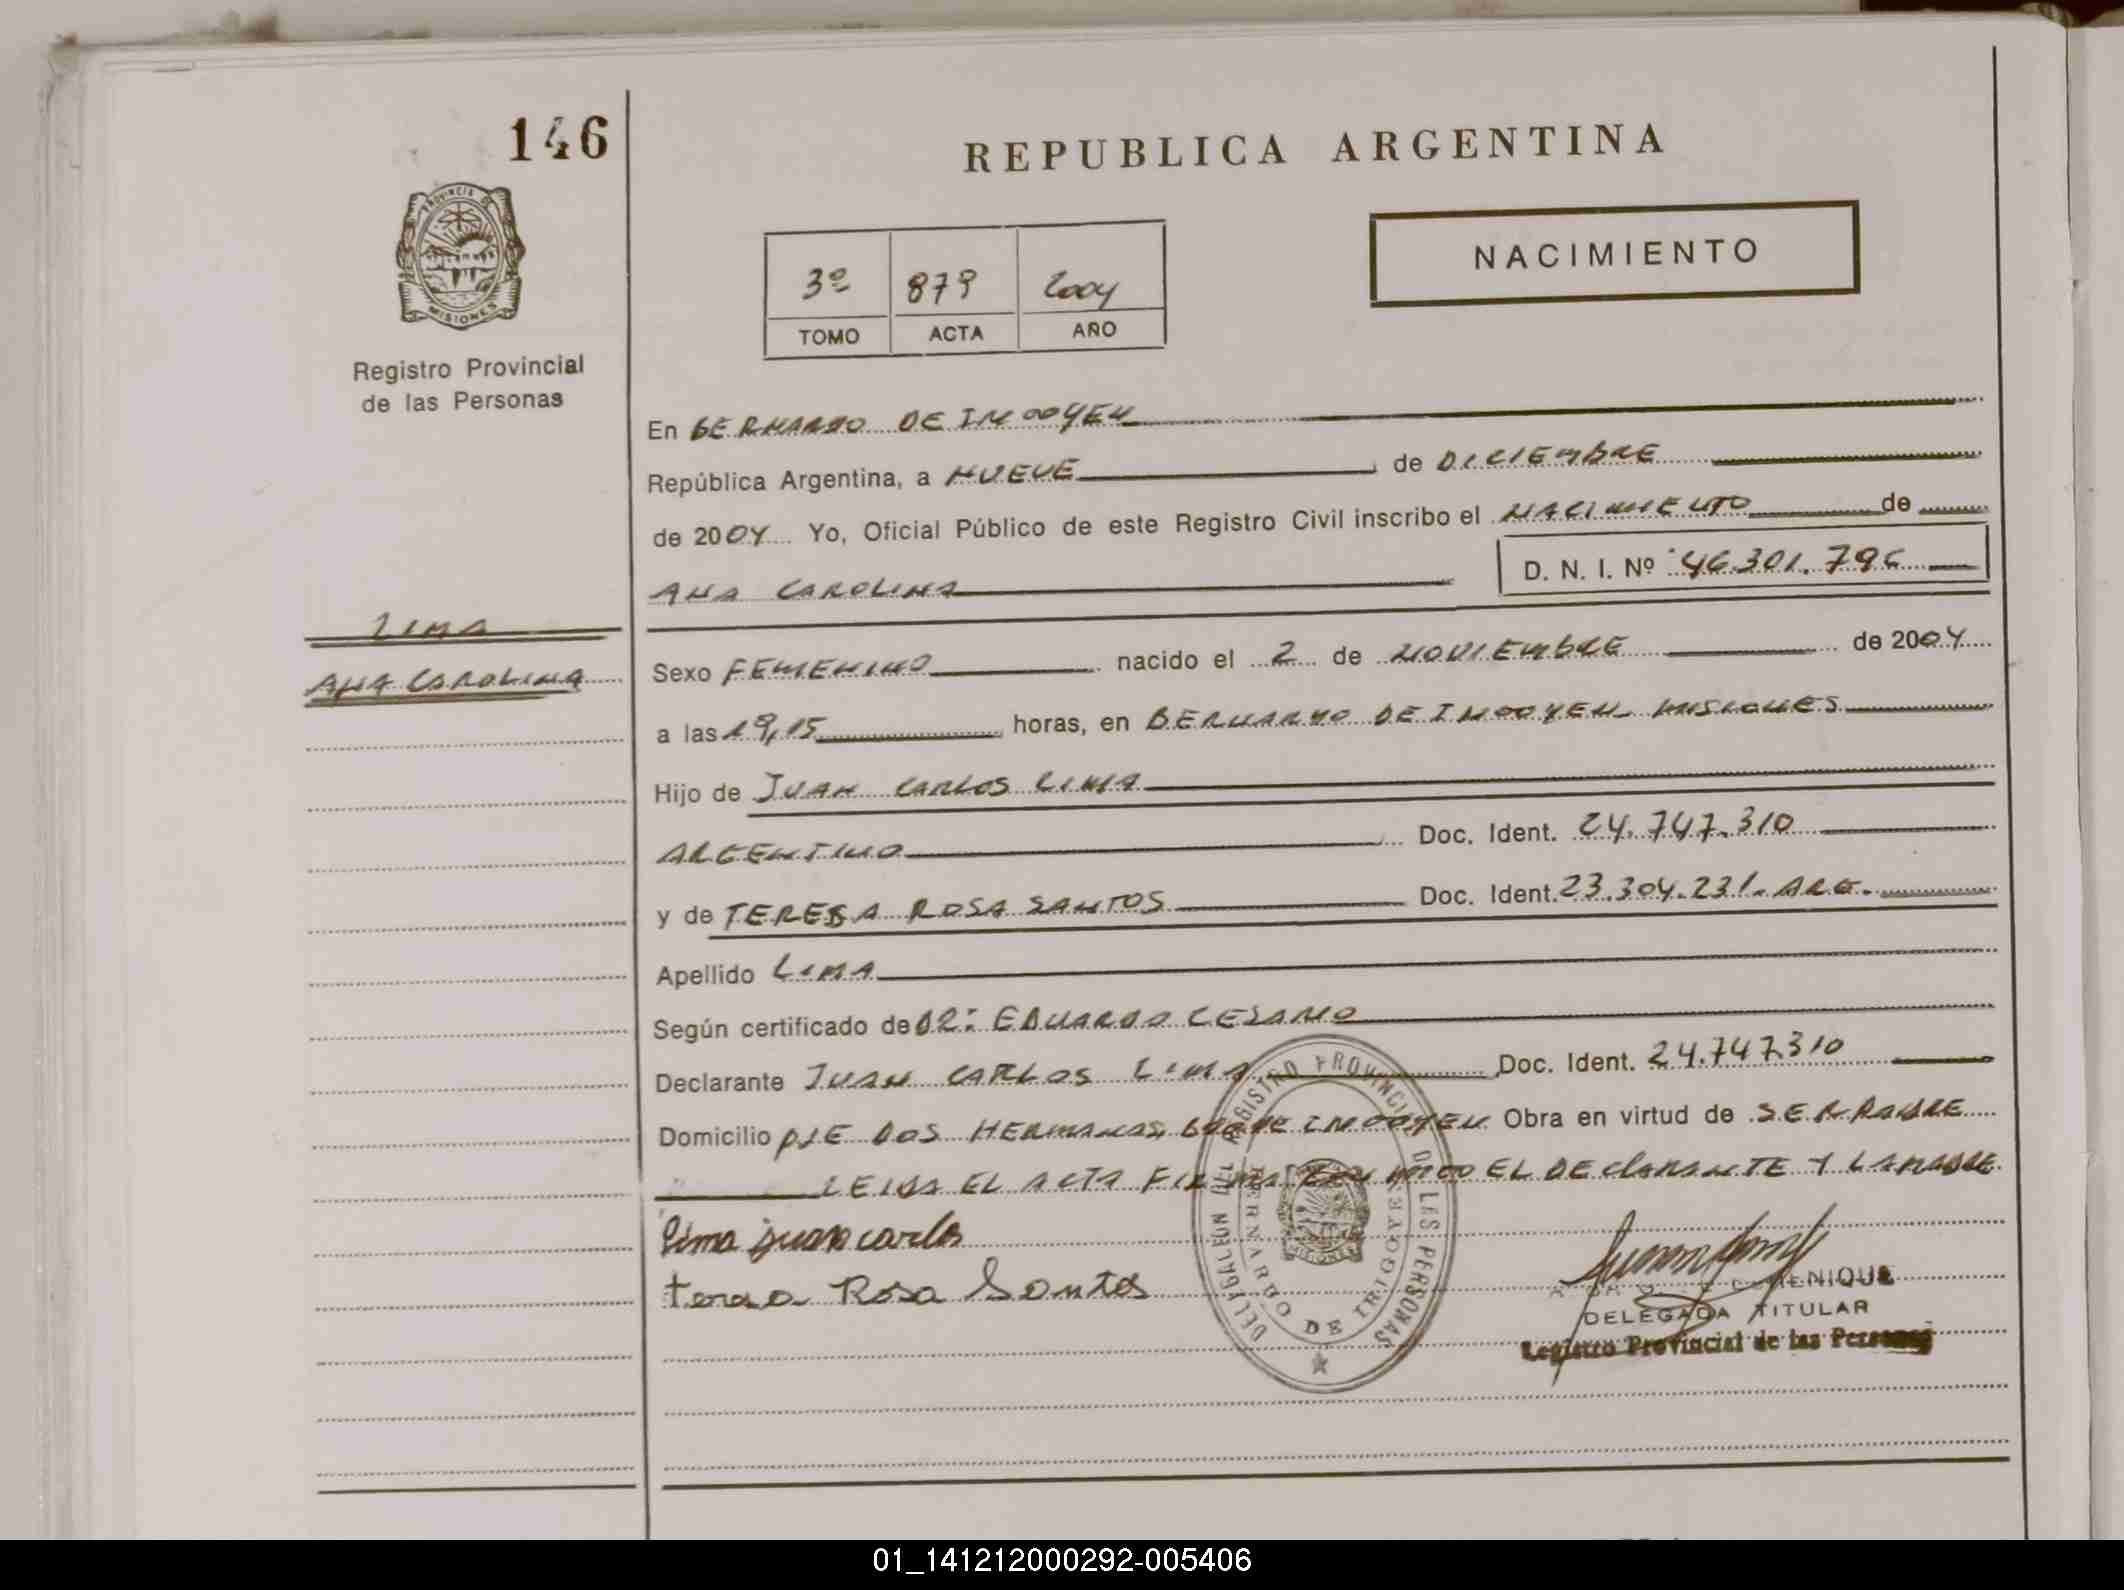 146
REPUBLICA ARGENTINA
PROVINCIA DE
MISIONES
NACIMIENTO
3º 879 2004
TOMO ACTA AÑO
Registro Provincial
de las Personas
En BERNARDO DE IRIGOYEN
República Argentina, a NUEVE de DICIEMBRE
de 2004 Yo, Oficial Público de este Registro Civil inscribo el NACIMIENTO de
ANA CAROLINA D. N. I. Nº 46.301.796
LIMA
ANA CAROLINA
Sexo FEMENINO nacido el 2 de NOVIEMBRE de 2004
a las 19,15 horas, en BERNARDO DE IRIGOYEN MISIONES
Hijo de JUAN CARLOS LIMA
ARGENTINO Doc. Ident. 24.747.310
y de TERESA ROSA SANTOS Doc. Ident. 23.304.231. ARG.
Apellido LIMA
Según certificado de DR: EDUARDO CESANO
Declarante JUAN CARLOS LIMA Doc. Ident. 24.747.310
Domicilio PJE DOS HERMANAS, DE IRIGOYEN Obra en virtud de SER PADRE
LEIDA EL ACTA FIRMAN EL DECLARANTE Y LA MADRE
Lima juan carlos
Rosa Santos
REGISTRO PROVINCIAL DE LAS PERSONAS
DELEGACION
BERNARDO DE IRIGOYEN
MISIONES
DELEGADA TITULAR
Registro Provincial de las Personas
01_141212000292-005406